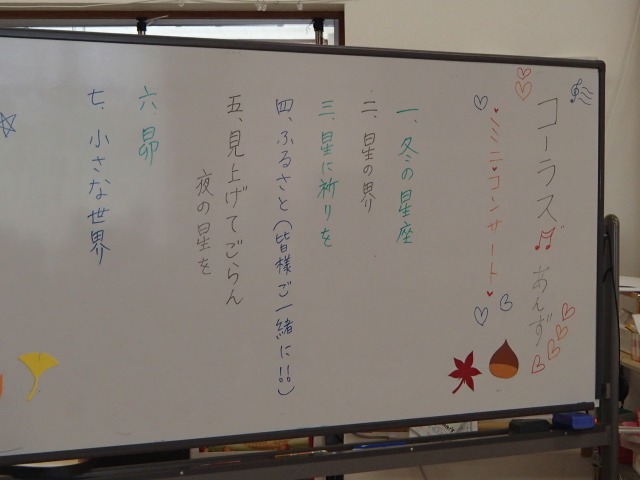 コーラス あんず
ミニコンサート
一、冬の星座
二、星の界
三、星に祈りを
四、ふるさと(皆様ご一緒に!!)
五、見上げてごらん
夜の星を
六、昴
七、小さな世界